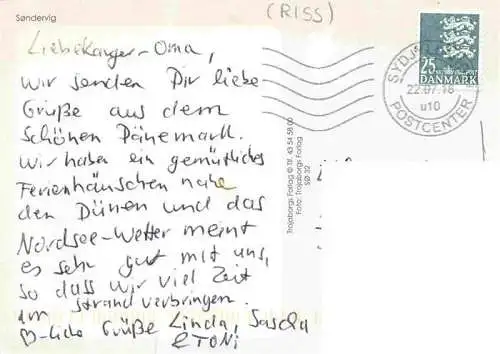 Søndervig
(RISS)
Liebe Kanger-Oma,
wir senden Dir liebe
Grüße aus dem
schönen Dänemark.
Wir haben ein gemütliches
Ferienhäuschen nahe
den Dünen und das
Nordsee-Wetter meint
es sehr gut mit uns,
so dass wir viel Zeit
am Strand verbringen.
♡-liche Grüße Linda, Sascha
& TONI
25
DANMARK
22.07.16
u10
POSTCENTER
Trojaborgs Forlag © Tlf. 43 54 58 00
Foto: Trojaborgs Forlag